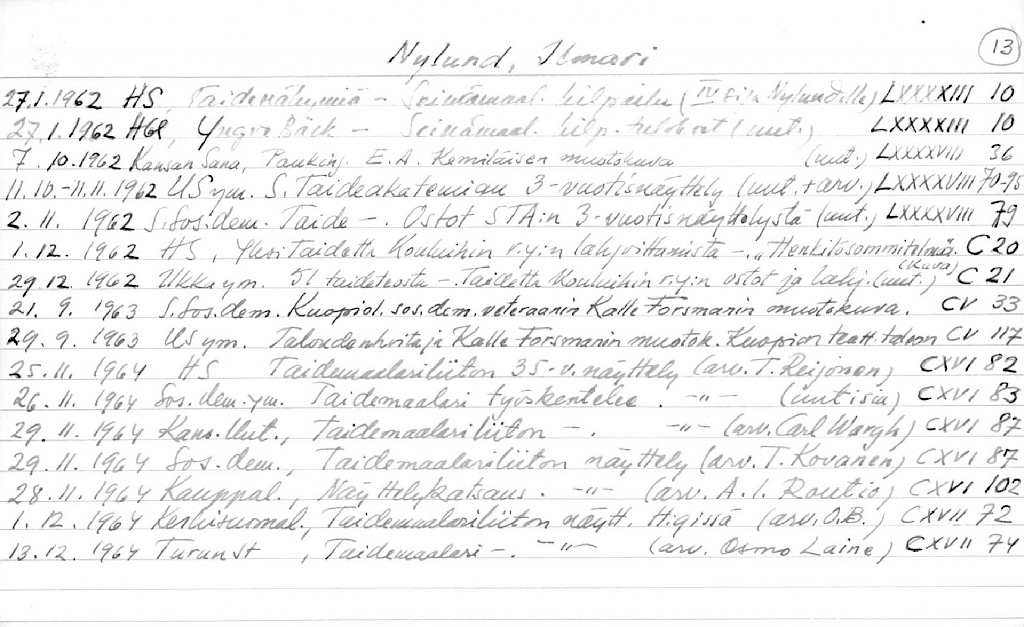 13
Nylund, Ilmari
27.1.1962 HS, Taidenälyniä – Seinämaal. kilpailu (IV sija Nylundille) LXXXXIII 10
27.1.1962 Hbl, Yngve Bäck – Seinämaal. kilp. tulokset (uut.) LXXXXIII 10
7.10.1962 Kansan Sana, Pankinj. E.A. Komiláisen muotokuva (uut.) LXXXXVIII 36
11.10.–11.11.1962 US ym. S. Taideakatemian 3-vuotisnäyttely (uut. + arv.) LXXXXVIII 70-95
2.11. 1962 S. Sos.dem. Taide –. Ostot STA:n 3-vuotisnäyttelystä (uut.) LXXXXVIII 79
1.12. 1962 HS, Yksi Taidetta Kouluihin r.y:n lahjoittamista –, "Henkilösommitelma. C 20
(kuva)
29.12. 1962 Ukka ym. 51 taideteosta – Taidetta Kouluihin r.y:n ostot ja lahj. (uut.) C 21
21. 9. 1963 S. Sos.dem. Kuopiol. sos.dem. veteraanin Kalle Forsmanin muotokuva. CV 33
29. 9. 1963 US ym. Taloudenhoitaja Kalle Forsmanin muotok. Kuopion teatt.taloon CV 117
25.11. 1964 HS Taidemaalariliiton 35-v. näyttely (arv. T. Reijonen) CXVI 82
26.11. 1964 Sos.dem. ym. Taidemaalari työskentelee. –"– (uutisia) CXVI 83
29.11. 1964 Kans.Uut., Taidemaalariliiton –. –"– (arv. Carl Wargh) CXVI 87
29.11. 1964 Sos.dem., Taidemaalariliiton näyttely (arv. T. Kovanen) CXVI 87
28.11. 1964 Kauppal., Näyttelykatsaus. –"– (arv. A. I. Routio) CXVI 102
1.12. 1964 Keskisuomal., Taidemaalariliiton näytt. H:gissä (arv. O.B.) CXVII 72
13.12. 1964 Turun St, Taidemaalari –. –"– (arv. Osmo Laine) CXVII 74